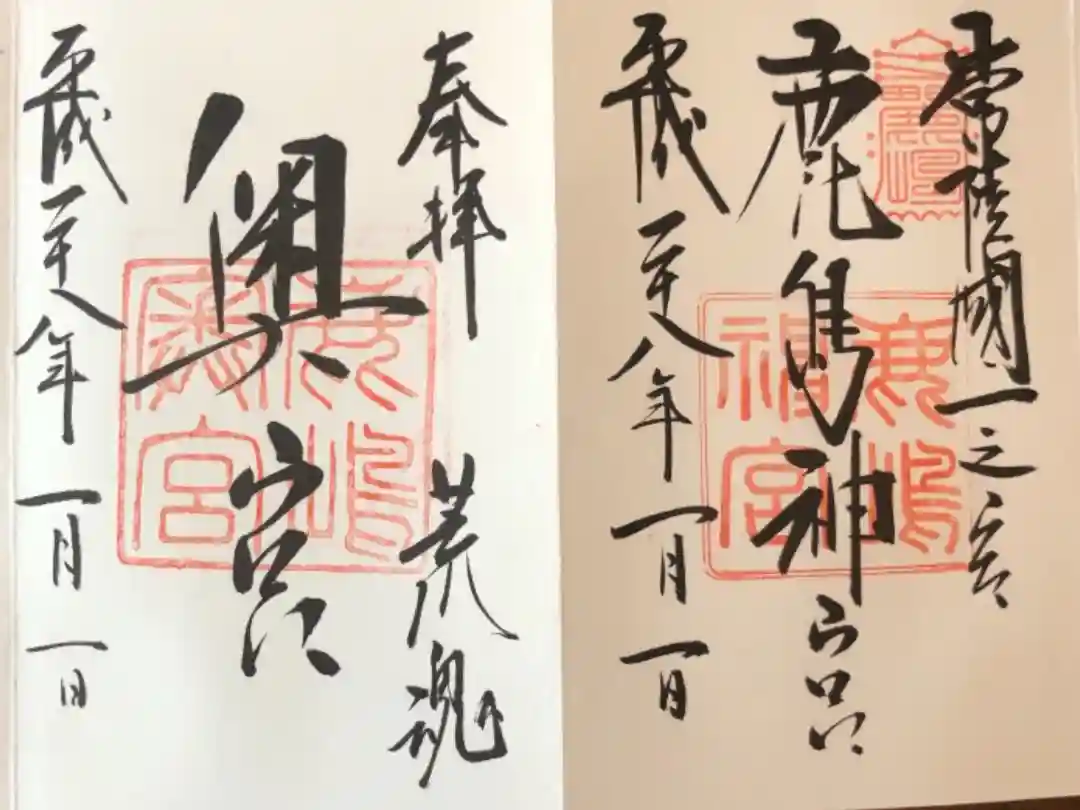 常陸國一之宮
鹿島神宮
鹿嶋
神宮
平成二十八年一月一日
奉拝 荒魂
奥宮
鹿嶋
奥宮
平成二十八年一月一日